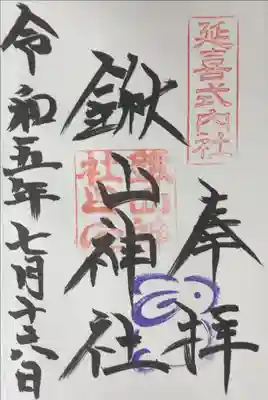 延喜式内社
奉拝
鍬山神社
令和五年七月十六日